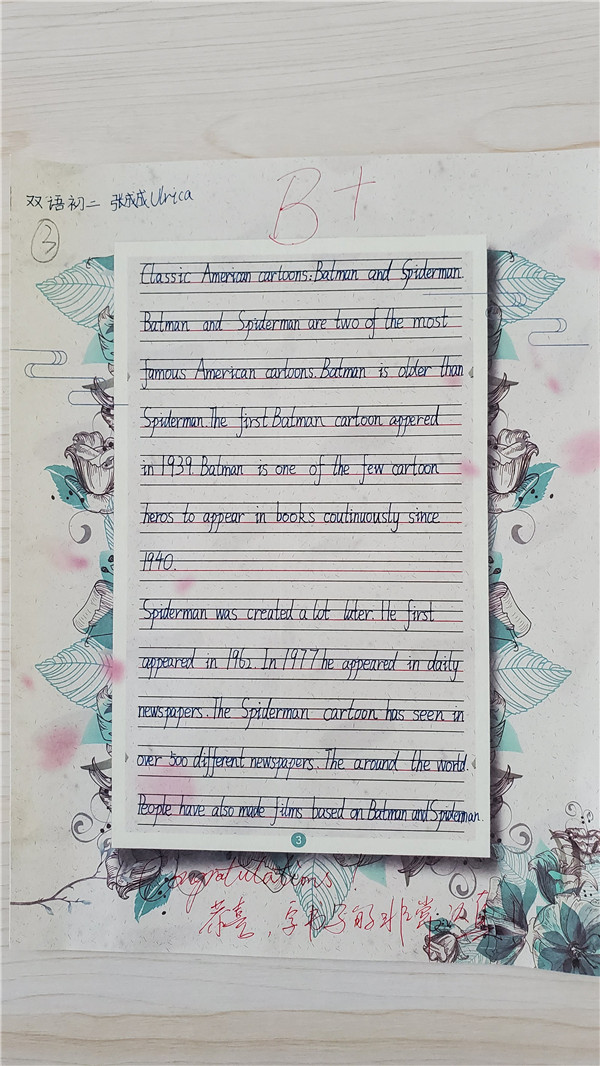 双语初二 张成成 Ulrica
B+
3
Classic American cartoons: Batman and Spiderman.
Batman and Spiderman are two of the most
famous American cartoons. Batman is older than
Spiderman. The first Batman cartoon appered
in 1939. Batman is one of the few cartoon
heros to appear in books coutinuously since
1940.
Spiderman was created a lot later. He first
appeared in 1962. In 1977 he appeared in daily
newspapers. The Spiderman cartoon has seen in
over 500 different newspapers. The around the world.
People have also made films based on Batman and Spiderman.
3
Congratulations
恭喜,字书写的非常认真